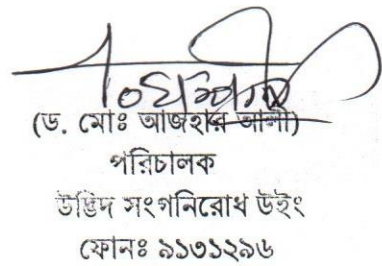 (ড. মোঃ আজহার আলী)
পরিচালক
উদ্ভিদ সংগনিরোধ উইং
ফোনঃ ৯১৩১২৯৬